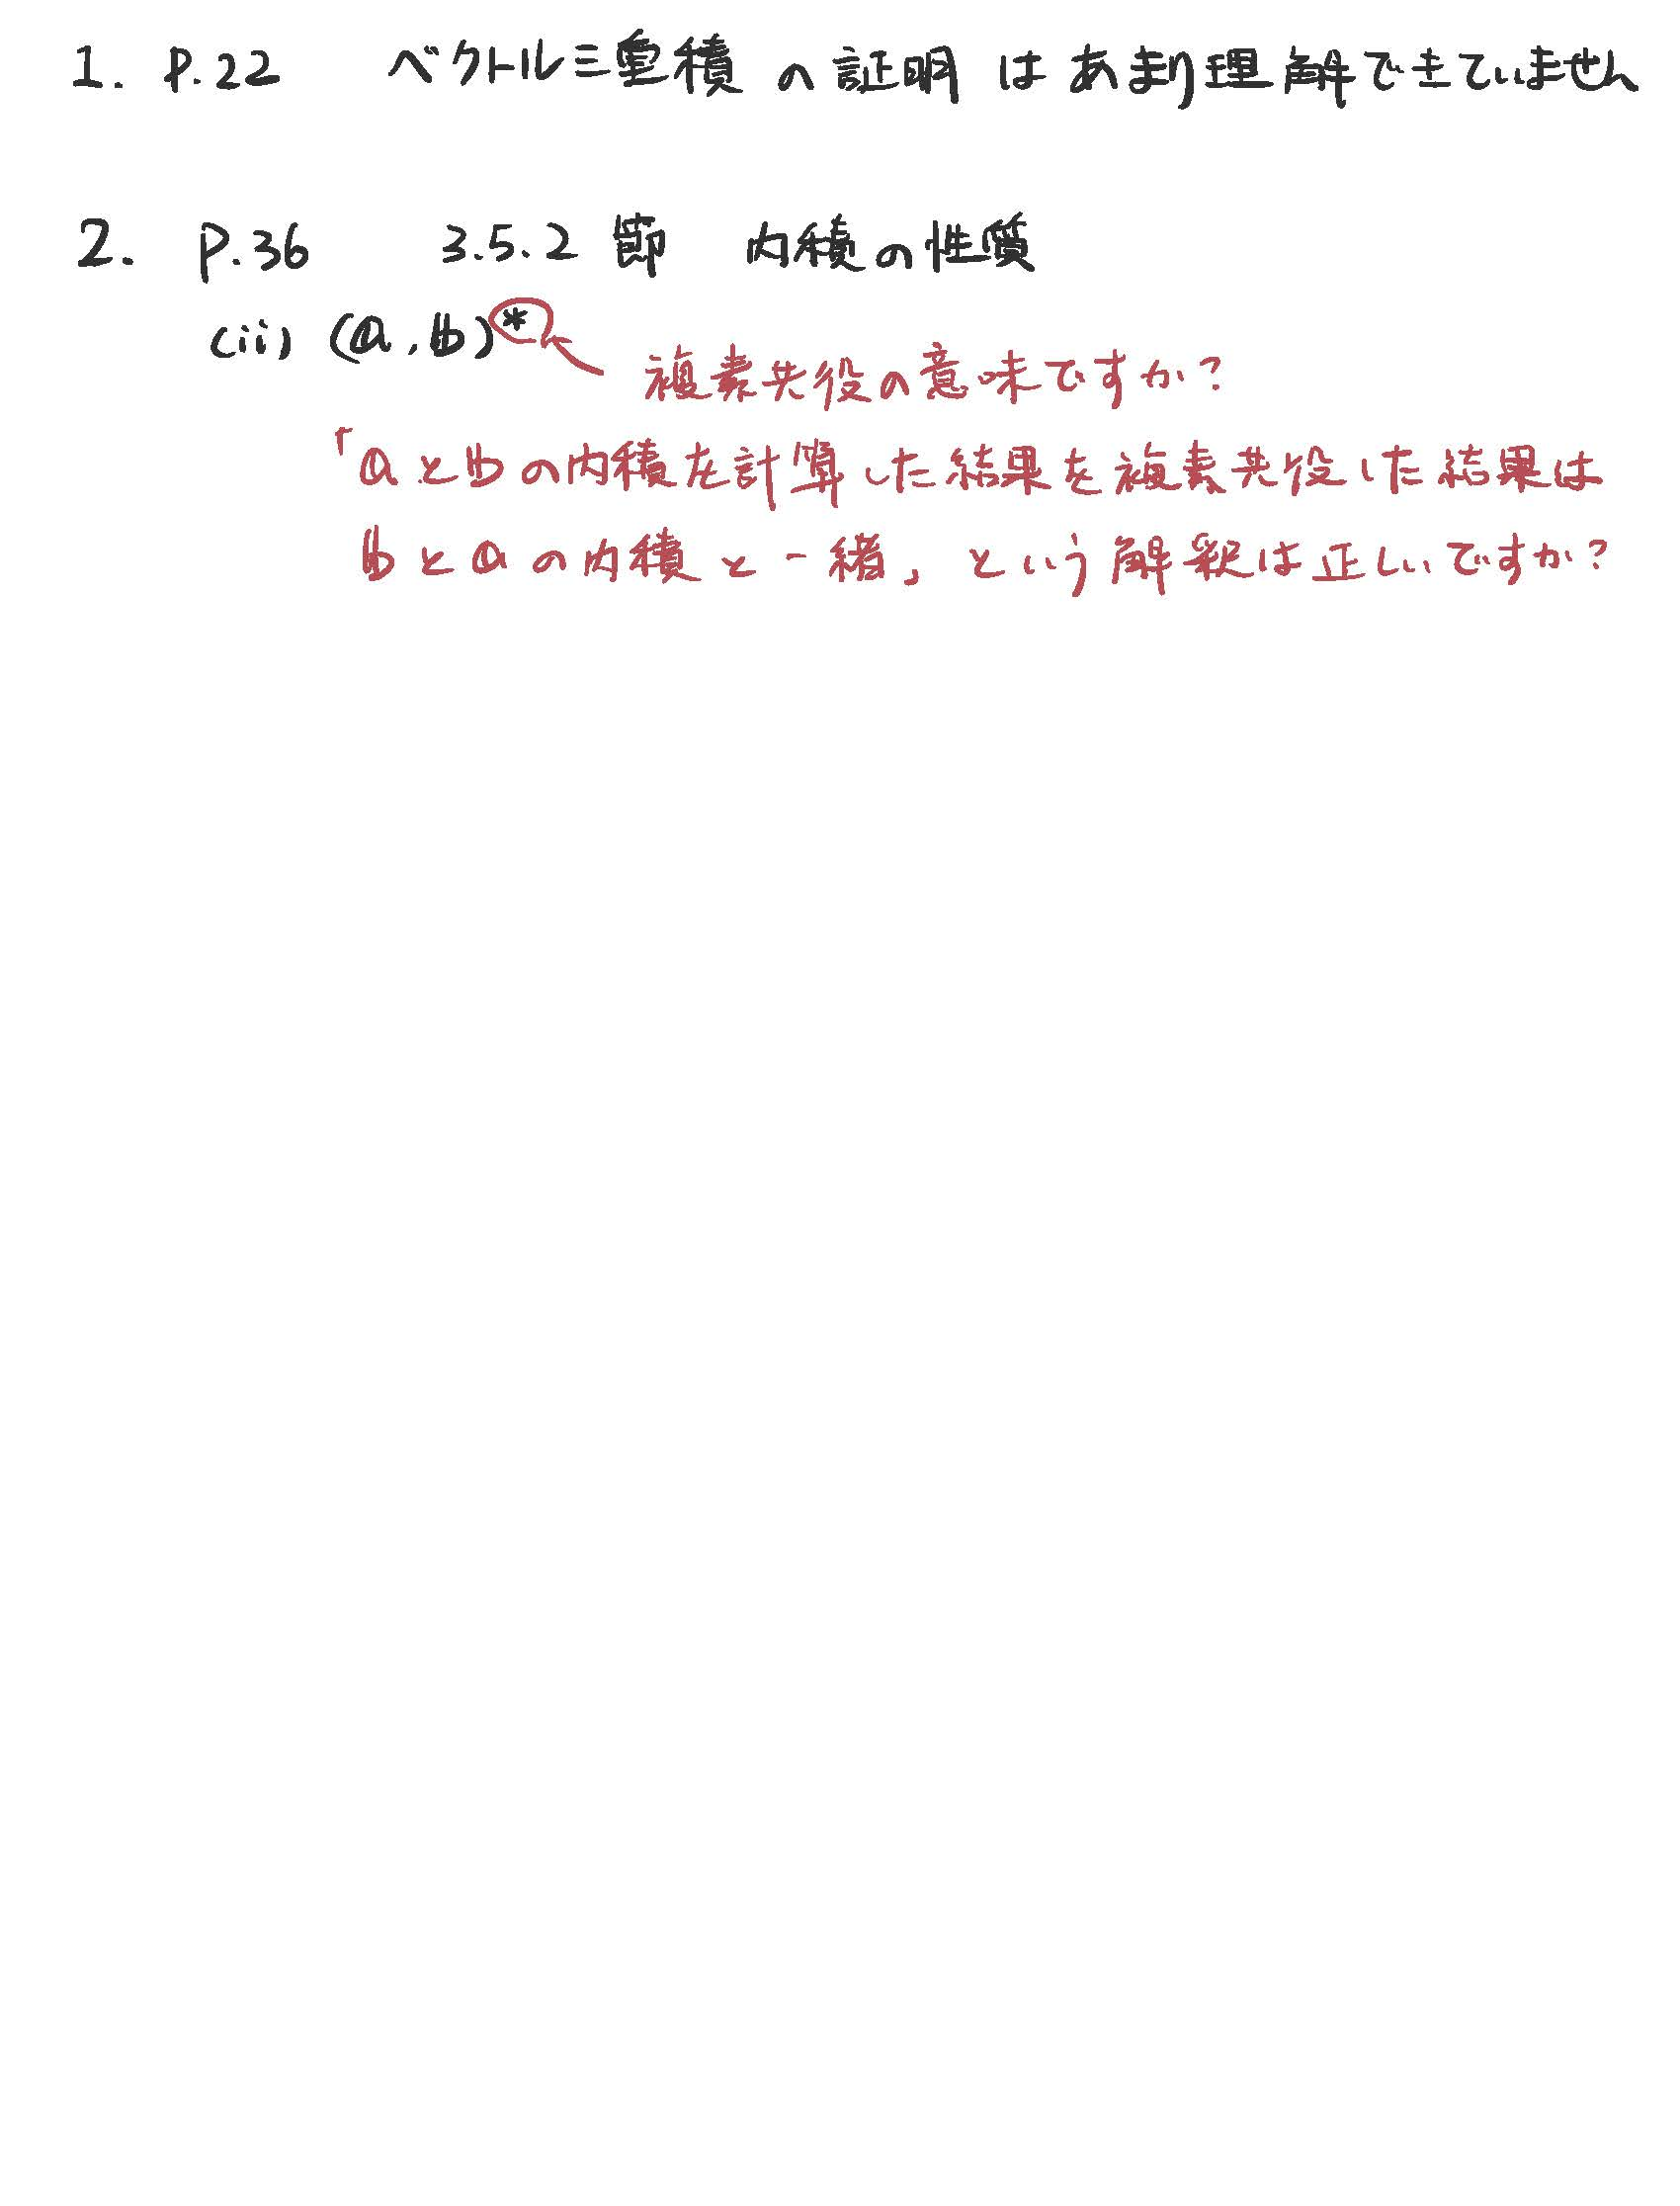 1. P.22 ベクトル三重積の証明はあまり理解できていません
2. P.36 3.5.2節 内積の性質
(ii) (a,b)*
複素共役の意味ですか?
「aとbの内積を計算した結果を複素共役した結果は
bとaの内積と一緒」という解釈は正しいですか?